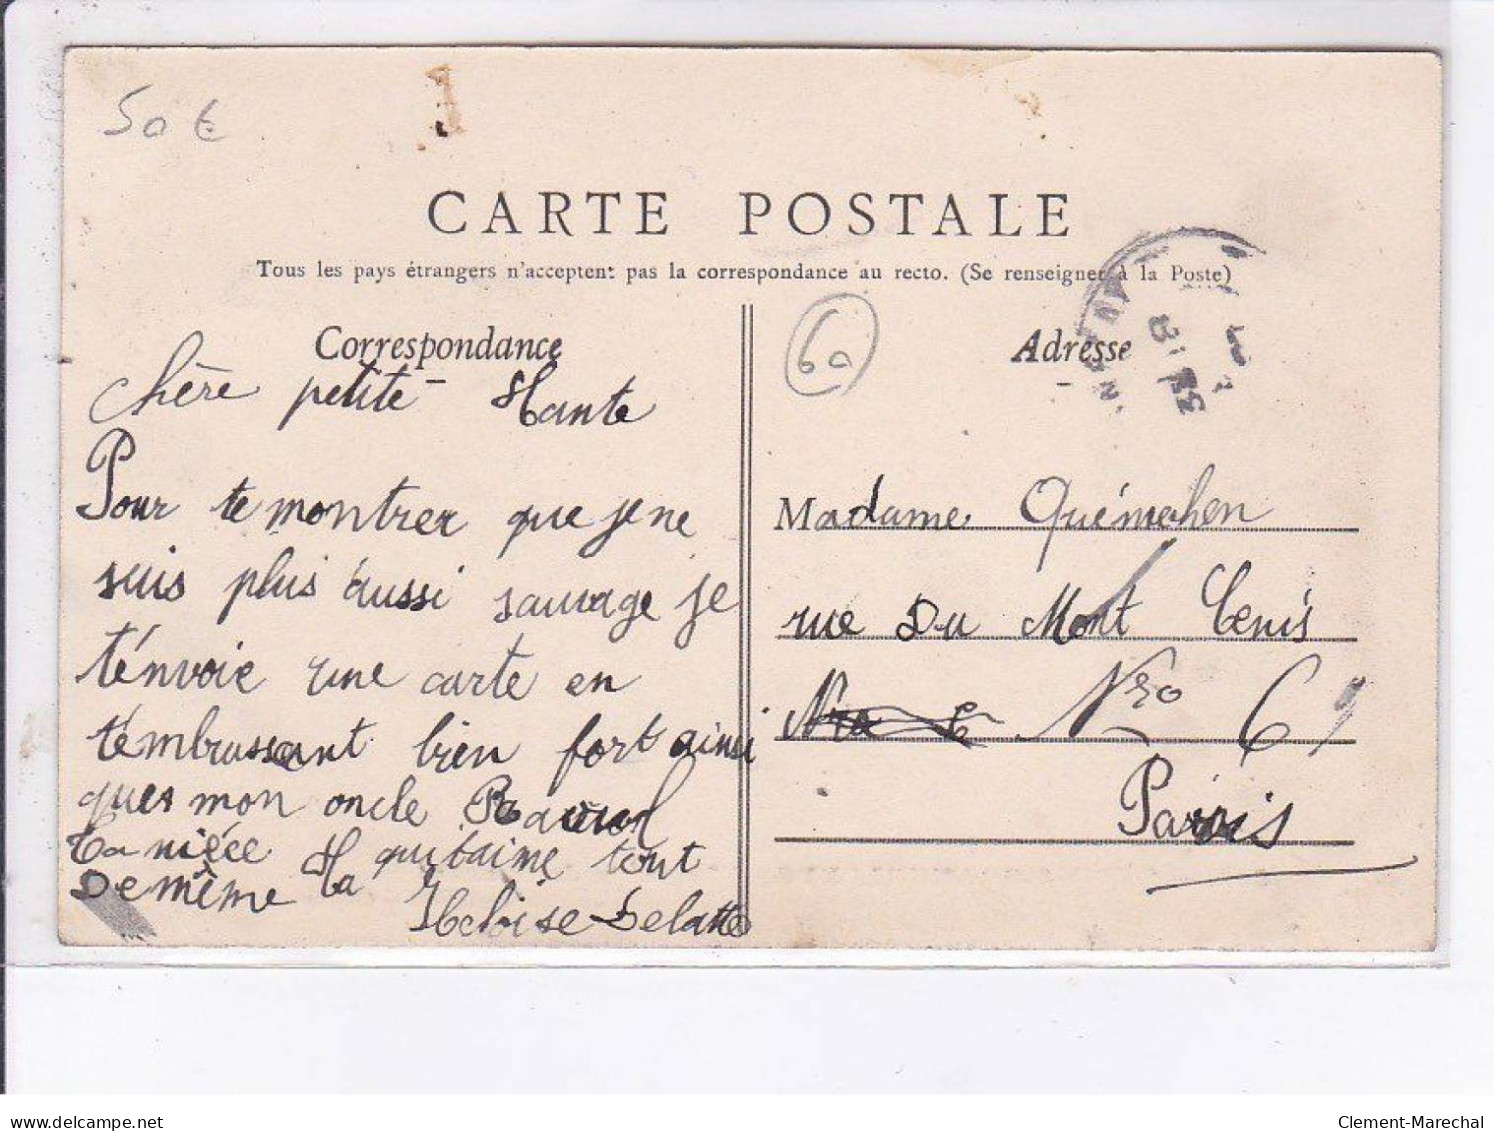 50 €
CARTE POSTALE
Tous les pays étrangers n'acceptent pas la correspondance au recto. (Se renseigner à la Poste)
Correspondance
Adresse
60
chère petite Hante
Pour te montrer que je ne
suis plus aussi sauvage je
t'envoie une carte en
t'embrassant bien fort ainsi
ques mon oncle Raoul
ta niéce qui t'aime tout
De même ta
Heloise Delatte
Madame Quémahen
rue Du Mont Cenis
Nro 69
Paris
delcampe.net
Clement-Marechal